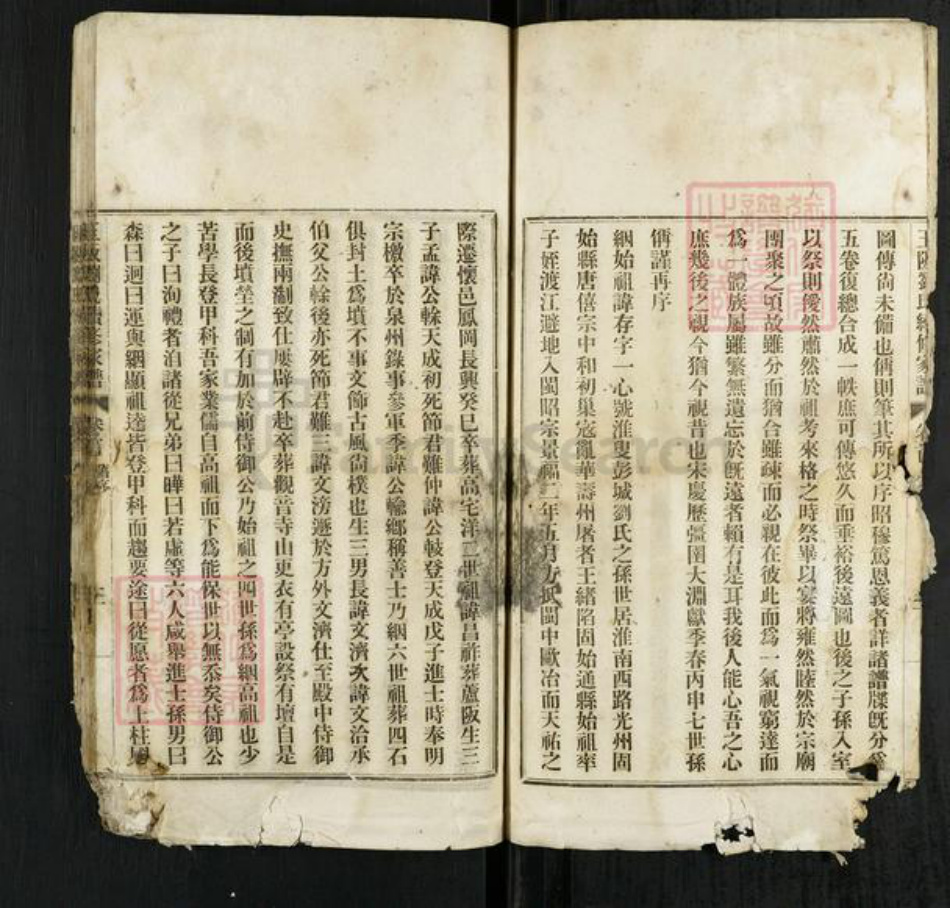 圖傳尚未備也偁則筆其所以序昭穆篤恩義者詳諸譜牒既分為
五卷復總合成一帙庶可傳悠久而垂裕後遠圖也後之子孫入室
以祭則僾然肅然於祖考來格之時祭畢以宴將雍然睦然於宗廟
團聚之頃故雖分而猶合雖疎而必親在彼此而為一氣視窮達而
為一體族屬雖繁無遺忘於既遠者賴有是耳我後人能心吾之心
庶幾後之視今猶今視昔也宋慶歷彊圉大淵獻季春丙申七世孫
偁謹再序
絪始祖諱存字一心號淮叟彭城劉氏之孫世居淮南西路光州固
始縣唐僖宗中和初巢寇亂華壽州屠者王緒陷固始通縣始祖率
子姪渡江避地入閩昭宗景福二年五月方抵閩中歐冶而天祐之
際遷懷邑鳳岡長興癸巳卒葬高宅洋二世祖諱昌祚葬蘆阪生三
子孟諱公榦天成初死節君難仲諱公輚登天成戊子進士時奉明
宗檄卒於泉州錄事參軍季諱公輸鄉稱善士乃絪六世祖葬四石
俱封土為墳不事文飾古風尚樸也生三男長諱文濟次諱文洽承
伯父公榦後亦死節君難三諱文滂遯於方外文濟仕至殿中侍御
史撫兩制致仕屢辟不赴卒葬觀音寺山更衣有亭設祭有壇自是
而後墳塋之制有加於前侍御公乃始祖之四世孫為絪高祖也少
苦學長登甲科吾家業儒自高祖而下為能保世以無忝矣侍御公
之子曰洵禮者泊諸從兄弟曰曄曰若虛等六人咸舉進士孫男曰
森曰迥曰運與絪顯祖逵皆登甲科而趨要途曰從愿者為上柱國
卷首
舊序
FamilySearch